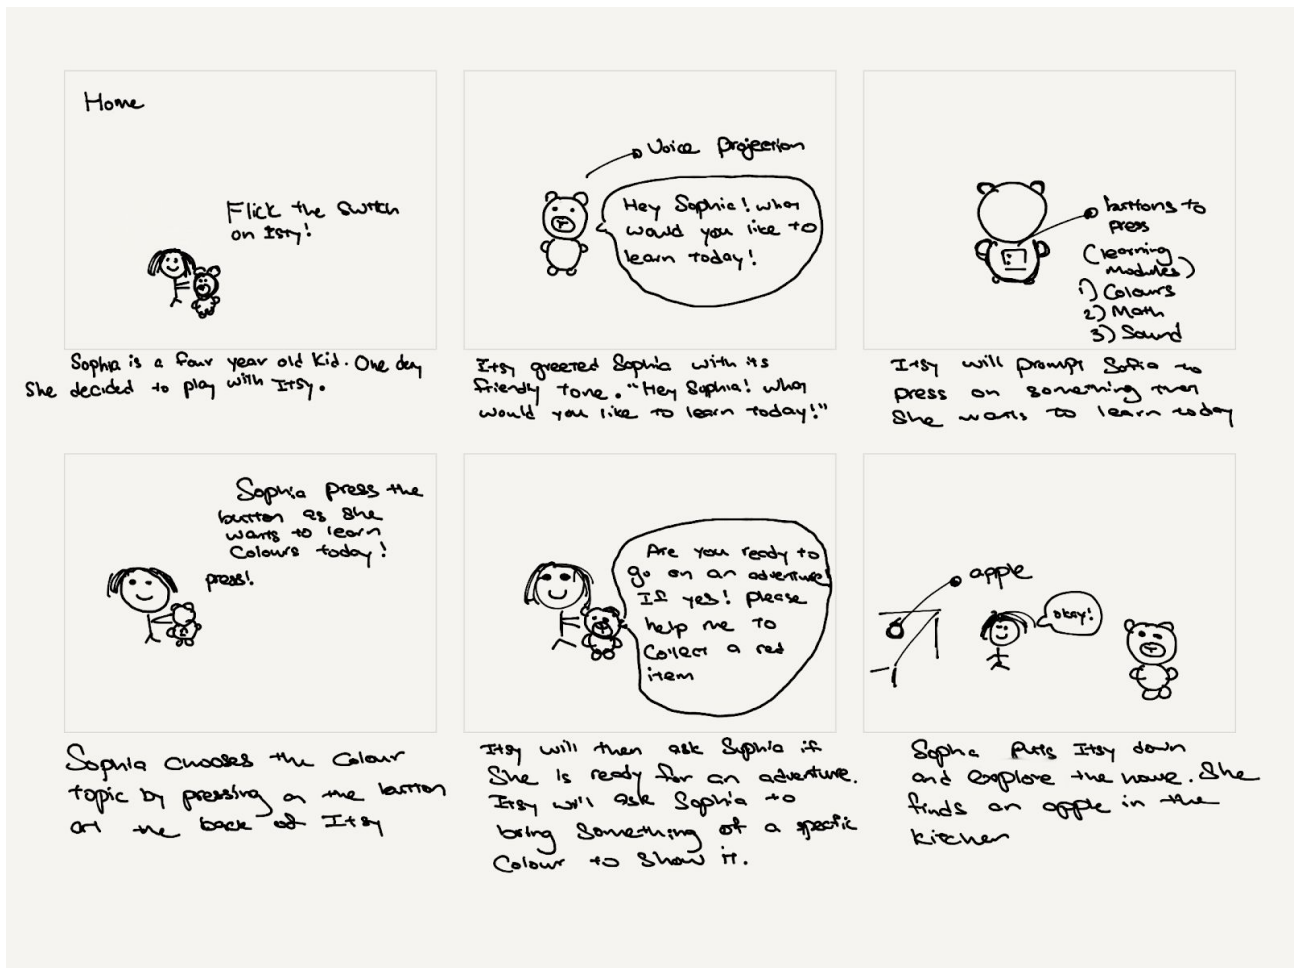 Home
Flick the switch
on Itsy!
Sophia is a four year old kid. One day
She decided to play with Itsy.
Voice Projection
Hey Sophia! what
would you like to
learn today!
Itsy greeted Sophia with its
friendly tone. "Hey Sophia! what
would you like to learn today!"
buttons to
press
(learning
modules)
1) Colours
2) Math
3) Sound
Itsy will prompt Sofia to
press on something that
She wants to learn today
Sophia press the
button as she
wants to learn
Colours today!
press!
Sophia chooses the Colour
topic by pressing on the button
at the back of Itsy
Are you ready to
go on an adventure!
If yes! please
help me to
Collect a red
item
Itsy will then ask Sophia if
She is ready for an adventure.
Itsy will ask Sophia to
bring something of a specific
Colour to show it.
apple
okay!
Sophia puts Itsy down
and explore the house. She
finds an apple in the
kitchen